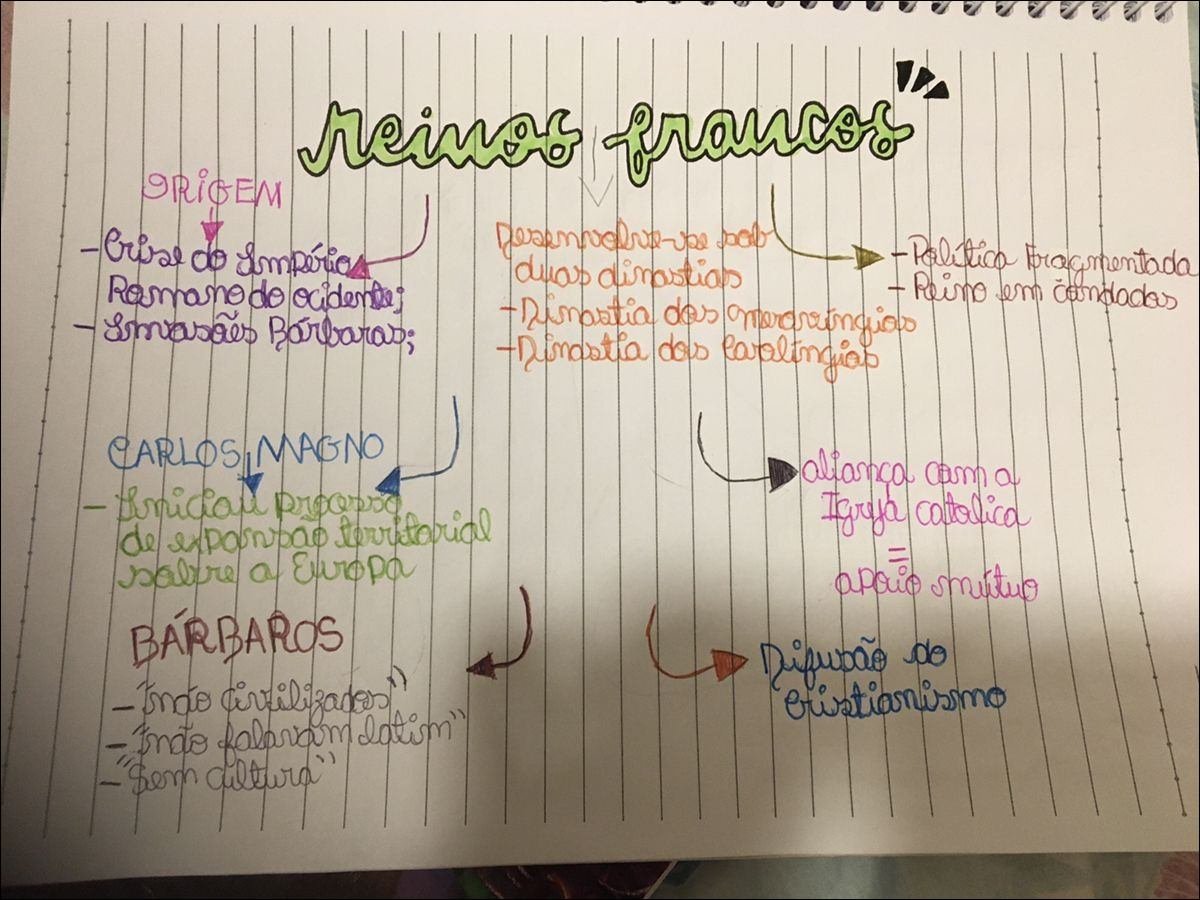 Reinos francos
ORIGEM
- Crise do Império
Romano do ocidente;
- Invasões Bárbaras;
Desenvolve-se sob
duas dinastias
- Dinastia dos merovíngios
- Dinastia dos Carolíngios
- Política Fragmentada
- Reino em condados
CARLOS MAGNO
- Iniciou processo
de expansão territorial
sobre a Europa
aliança com a
Igreja catolica
=
apoio mútuo
BÁRBAROS
- "não civilizados"
- "não falavam latim"
- "Sem cultura"
Difusão do
cristianismo